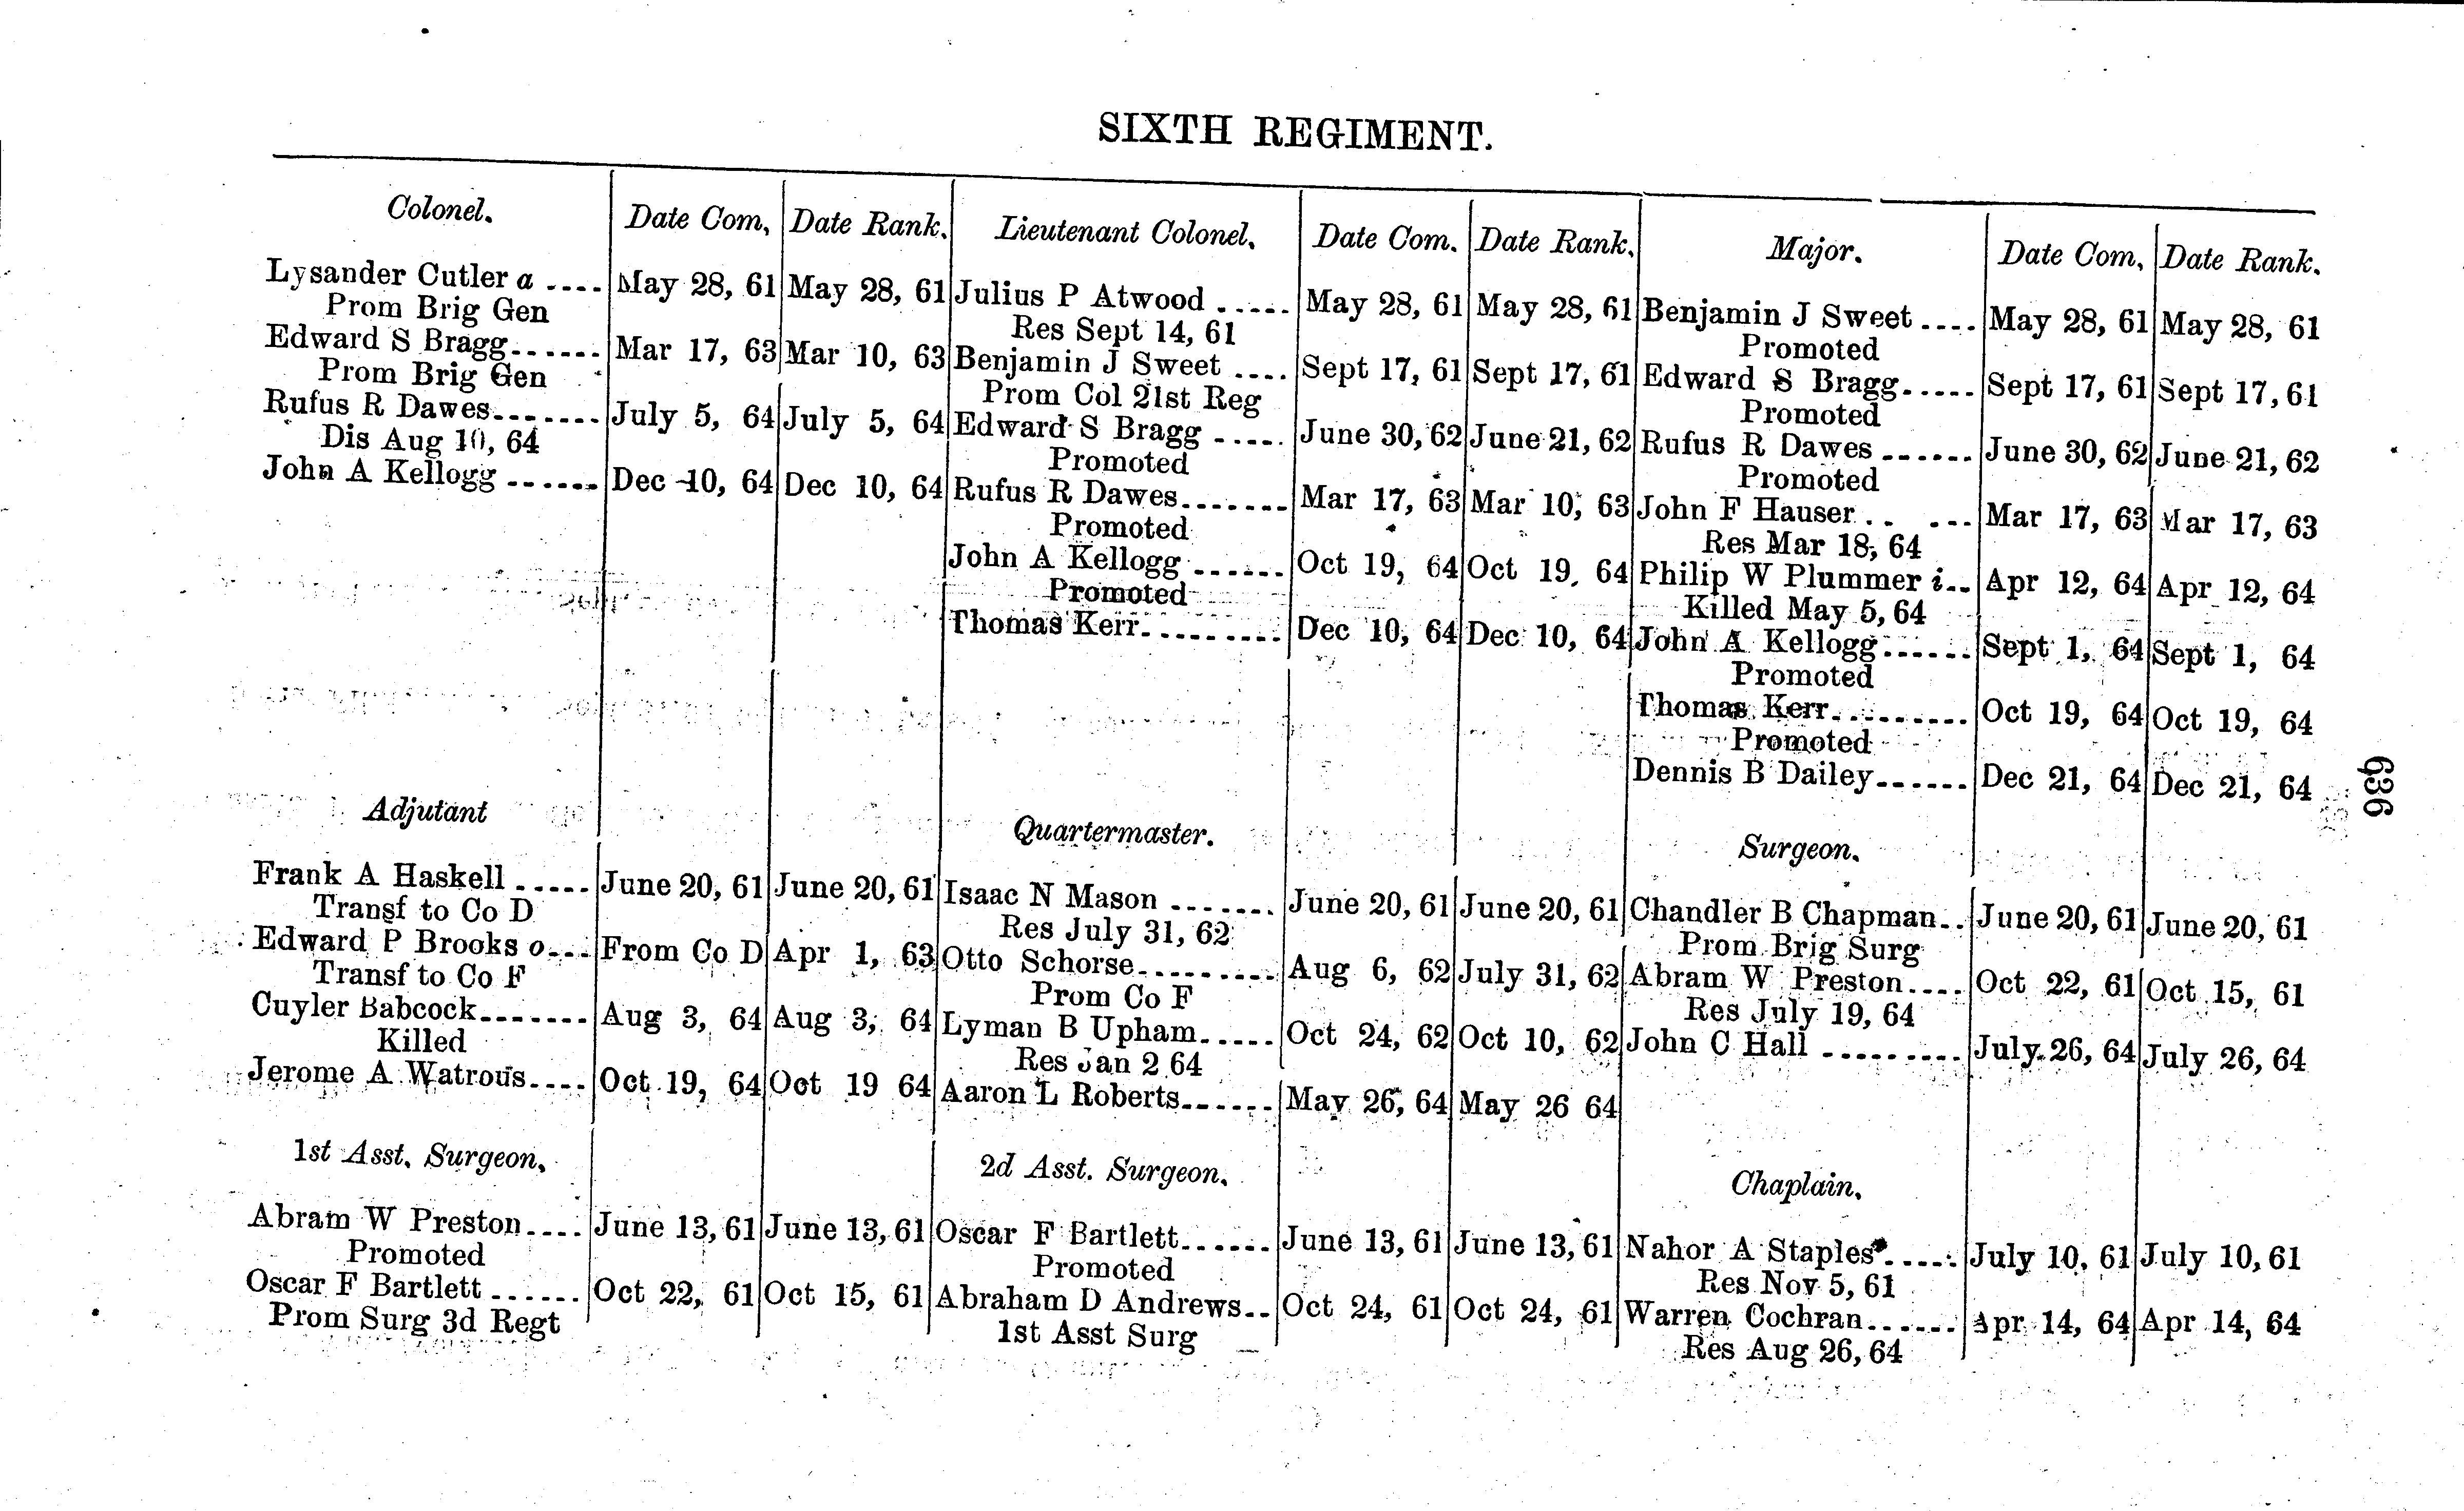 SIXTH REGIMENT.
Colonel. Date Com. Date Rank. Lieutenant Colonel. Date Com. Date Rank. Major. Date Com. Date Rank.
Lysander Cutler a .... May 28, 61 May 28, 61 Julius P Atwood ..... May 28, 61 May 28, 61 Benjamin J Sweet .... May 28, 61 May 28, 61
Prom Brig Gen Res Sept 14, 61 Promoted
Edward S Bragg...... Mar 17, 63 Mar 10, 63 Benjamin J Sweet .... Sept 17, 61 Sept 17, 61 Edward S Bragg..... Sept 17, 61 Sept 17, 61
Prom Brig Gen Prom Col 21st Reg Promoted
Rufus R Dawes....... July 5, 64 July 5, 64 Edward S Bragg ..... June 30, 62 June 21, 62 Rufus R Dawes ...... June 30, 62 June 21, 62
Dis Aug 10, 64 Promoted Promoted
John A Kellogg ...... Dec 10, 64 Dec 10, 64 Rufus R Dawes....... Mar 17, 63 Mar 10, 63 John F Hauser .. ... Mar 17, 63 Mar 17, 63
Promoted Res Mar 18, 64
John A Kellogg ...... Oct 19, 64 Oct 19, 64 Philip W Plummer i.. Apr 12, 64 Apr 12, 64
Promoted Killed May 5, 64
Thomas Kerr......... Dec 10, 64 Dec 10, 64 John A Kellogg...... Sept 1, 64 Sept 1, 64
Promoted
Thomas Kerr......... Oct 19, 64 Oct 19, 64
Promoted
Dennis B Dailey...... Dec 21, 64 Dec 21, 64
636
Adjutant Quartermaster. Surgeon.
Frank A Haskell ..... June 20, 61 June 20, 61 Isaac N Mason ....... June 20, 61 June 20, 61 Chandler B Chapman.. June 20, 61 June 20, 61
Transf to Co D Res July 31, 62 Prom Brig Surg
Edward P Brooks o... From Co D Apr 1, 63 Otto Schorse......... Aug 6, 62 July 31, 62 Abram W Preston.... Oct 22, 61 Oct 15, 61
Transf to Co F Prom Co F Res July 19, 64
Cuyler Babcock....... Aug 3, 64 Aug 3, 64 Lyman B Upham..... Oct 24, 62 Oct 10, 62 John C Hall ......... July 26, 64 July 26, 64
Killed Res Jan 2 64
Jerome A Watrous.... Oct 19, 64 Oct 19 64 Aaron L Roberts...... May 26, 64 May 26 64
1st Asst. Surgeon. 2d Asst. Surgeon. Chaplain.
Abram W Preston.... June 13, 61 June 13, 61 Oscar F Bartlett...... June 13, 61 June 13, 61 Nahor A Staples..... July 10, 61 July 10, 61
Promoted Promoted Res Nov 5, 61
Oscar F Bartlett ...... Oct 22, 61 Oct 15, 61 Abraham D Andrews.. Oct 24, 61 Oct 24, 61 Warren Cochran...... Apr 14, 64 Apr 14, 64
Prom Surg 3d Regt 1st Asst Surg Res Aug 26, 64